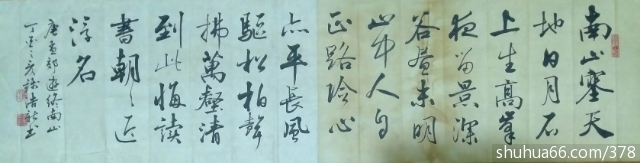 南山塞天
地日月石
上生高峯
夜留景深
谷晝未明
山中人自
正路險心
亦平長風
驅松柏聲
拂萬壑清
到此悔讀
書朝々近
浮名
唐孟郊遊終南山
丁酉之
shuhua66.com/378